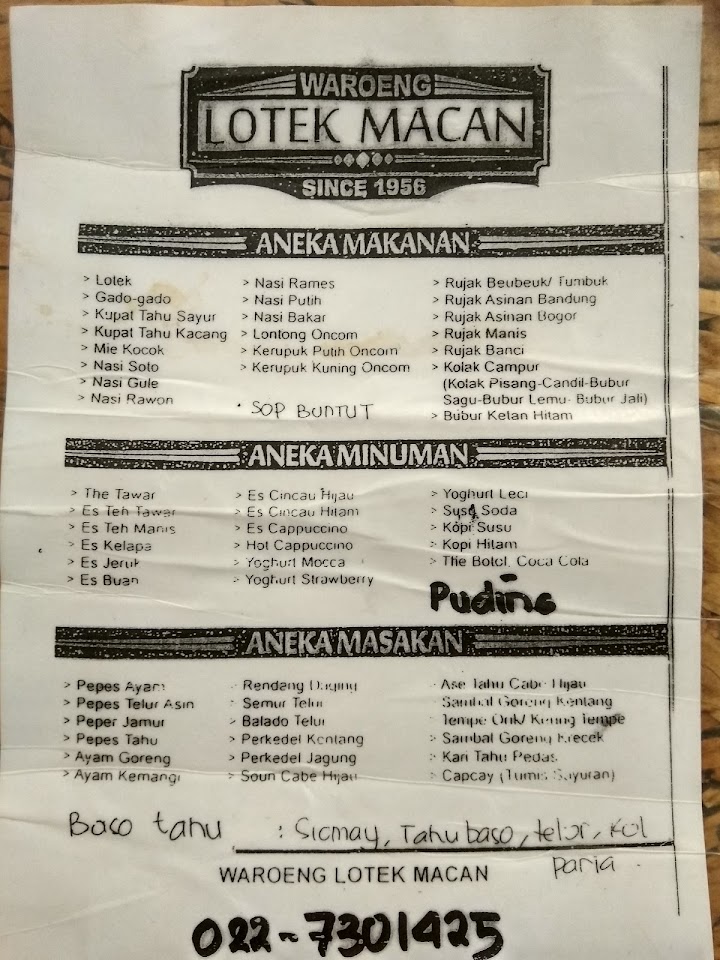 WAROENG
LOTEK MACAN
SINCE 1956
ANEKA MAKANAN
> Lotek
> Gado-gado
> Kupat Tahu Sayur
> Kupat Tahu Kacang
> Mie Kocok
> Nasi Soto
> Nasi Gule
> Nasi Rawon
> Nasi Rames
> Nasi Putih
> Nasi Bakar
> Lontong Oncom
> Kerupuk Putih Oncom
> Kerupuk Kuning Oncom
· SOP BUNTUT
> Rujak Beubeuk/ Tumbuk
> Rujak Asinan Bandung
> Rujak Asinan Bogor
> Rujak Manis
> Rujak Banci
> Kolak Campur
(Kolak Pisang-Candil-Bubur
Sagu-Bubur Lemu- Bubur Jali)
> Bubur Ketan Hitam
ANEKA MINUMAN
> The Tawar
> Es Teh Tawar
> Es Teh Manis
> Es Kelapa
> Es Jeruk
> Es Buah
> Es Cincau Hijau
> Es Cincau Hitam
> Es Cappuccino
> Hot Cappuccino
> Yoghurt Mocca
> Yoghurt Strawberry
> Yoghurt Leci
> Susu Soda
> Kopi Susu
> Kopi Hitam
> The Botol, Coca Cola
Puding
ANEKA MASAKAN
> Pepes Ayam
> Pepes Telur Asin
> Peper Jamur
> Pepes Tahu
> Ayam Goreng
> Ayam Kemangi
Rendang Daging
> Semur Telur
> Balado Telur
> Perkedel Kentang
> Perkedel Jagung
> Soun Cabe Hijau
Ase Tahu Cabe Hijau
Sambal Goreng Kentang
Tempe Orik/ Kering Tempe
> Sambal Goreng Krecek
> Kari Tahu Pedas
> Capcay (Tumis Sayuran)
Baso tahu : Siomay, Tahu baso, telur, kol
paria.
WAROENG LOTEK MACAN
022-7301425